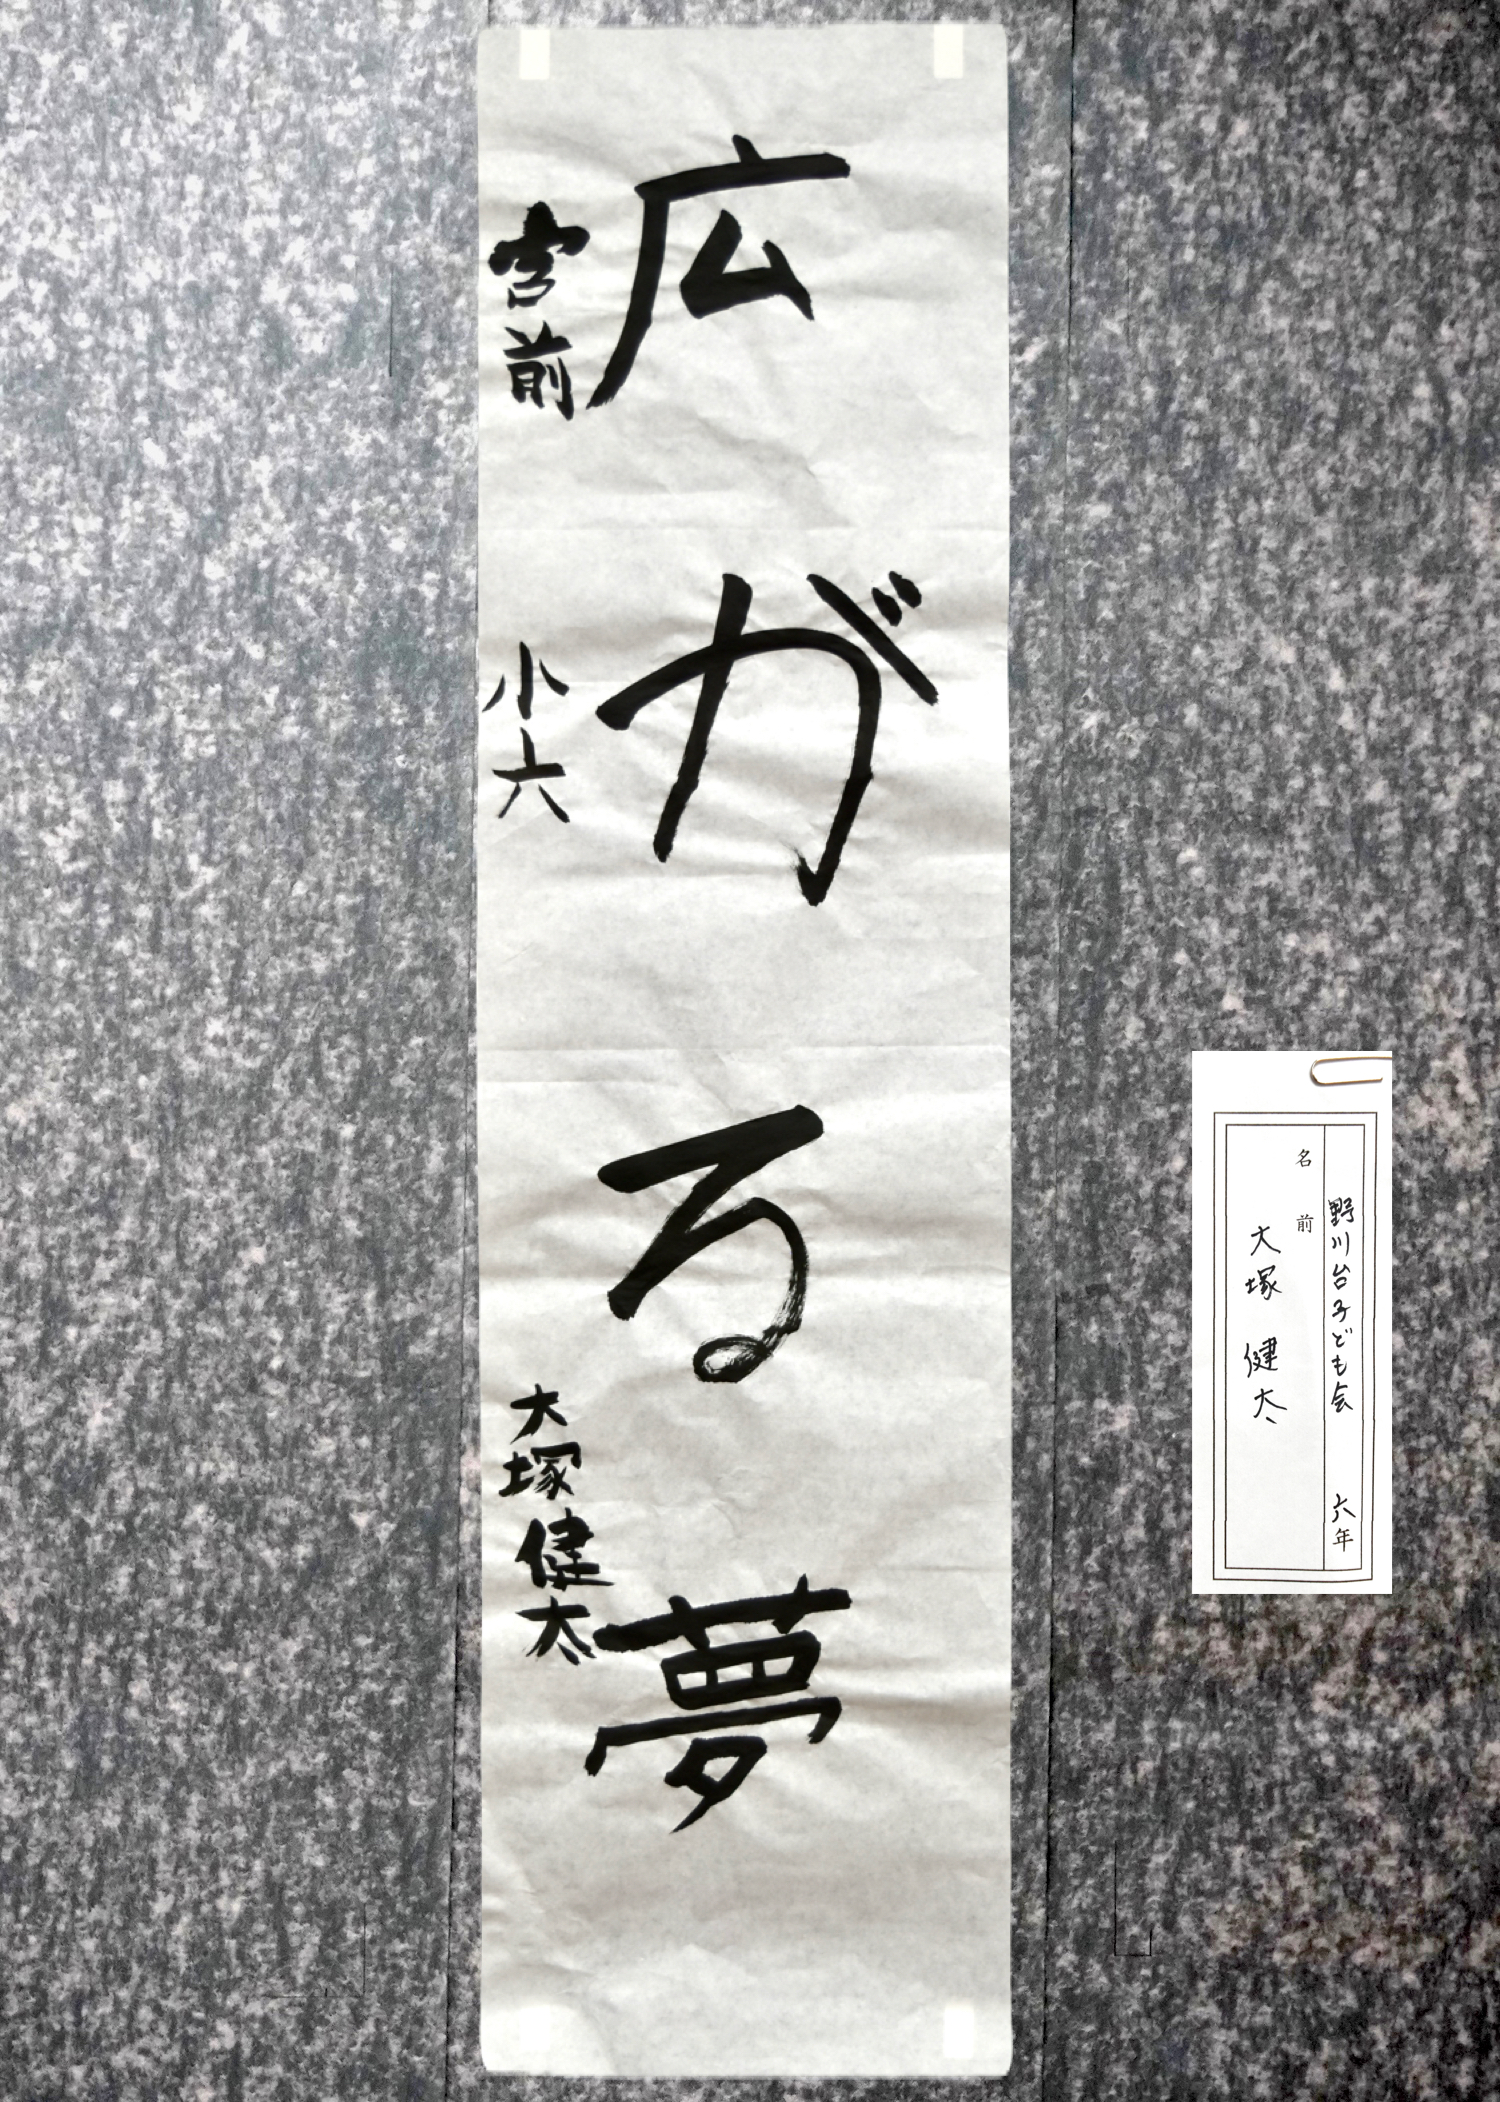 広がる夢
宮前 小六 大塚健太
野川台子ども会 六年
名前
大塚 健太